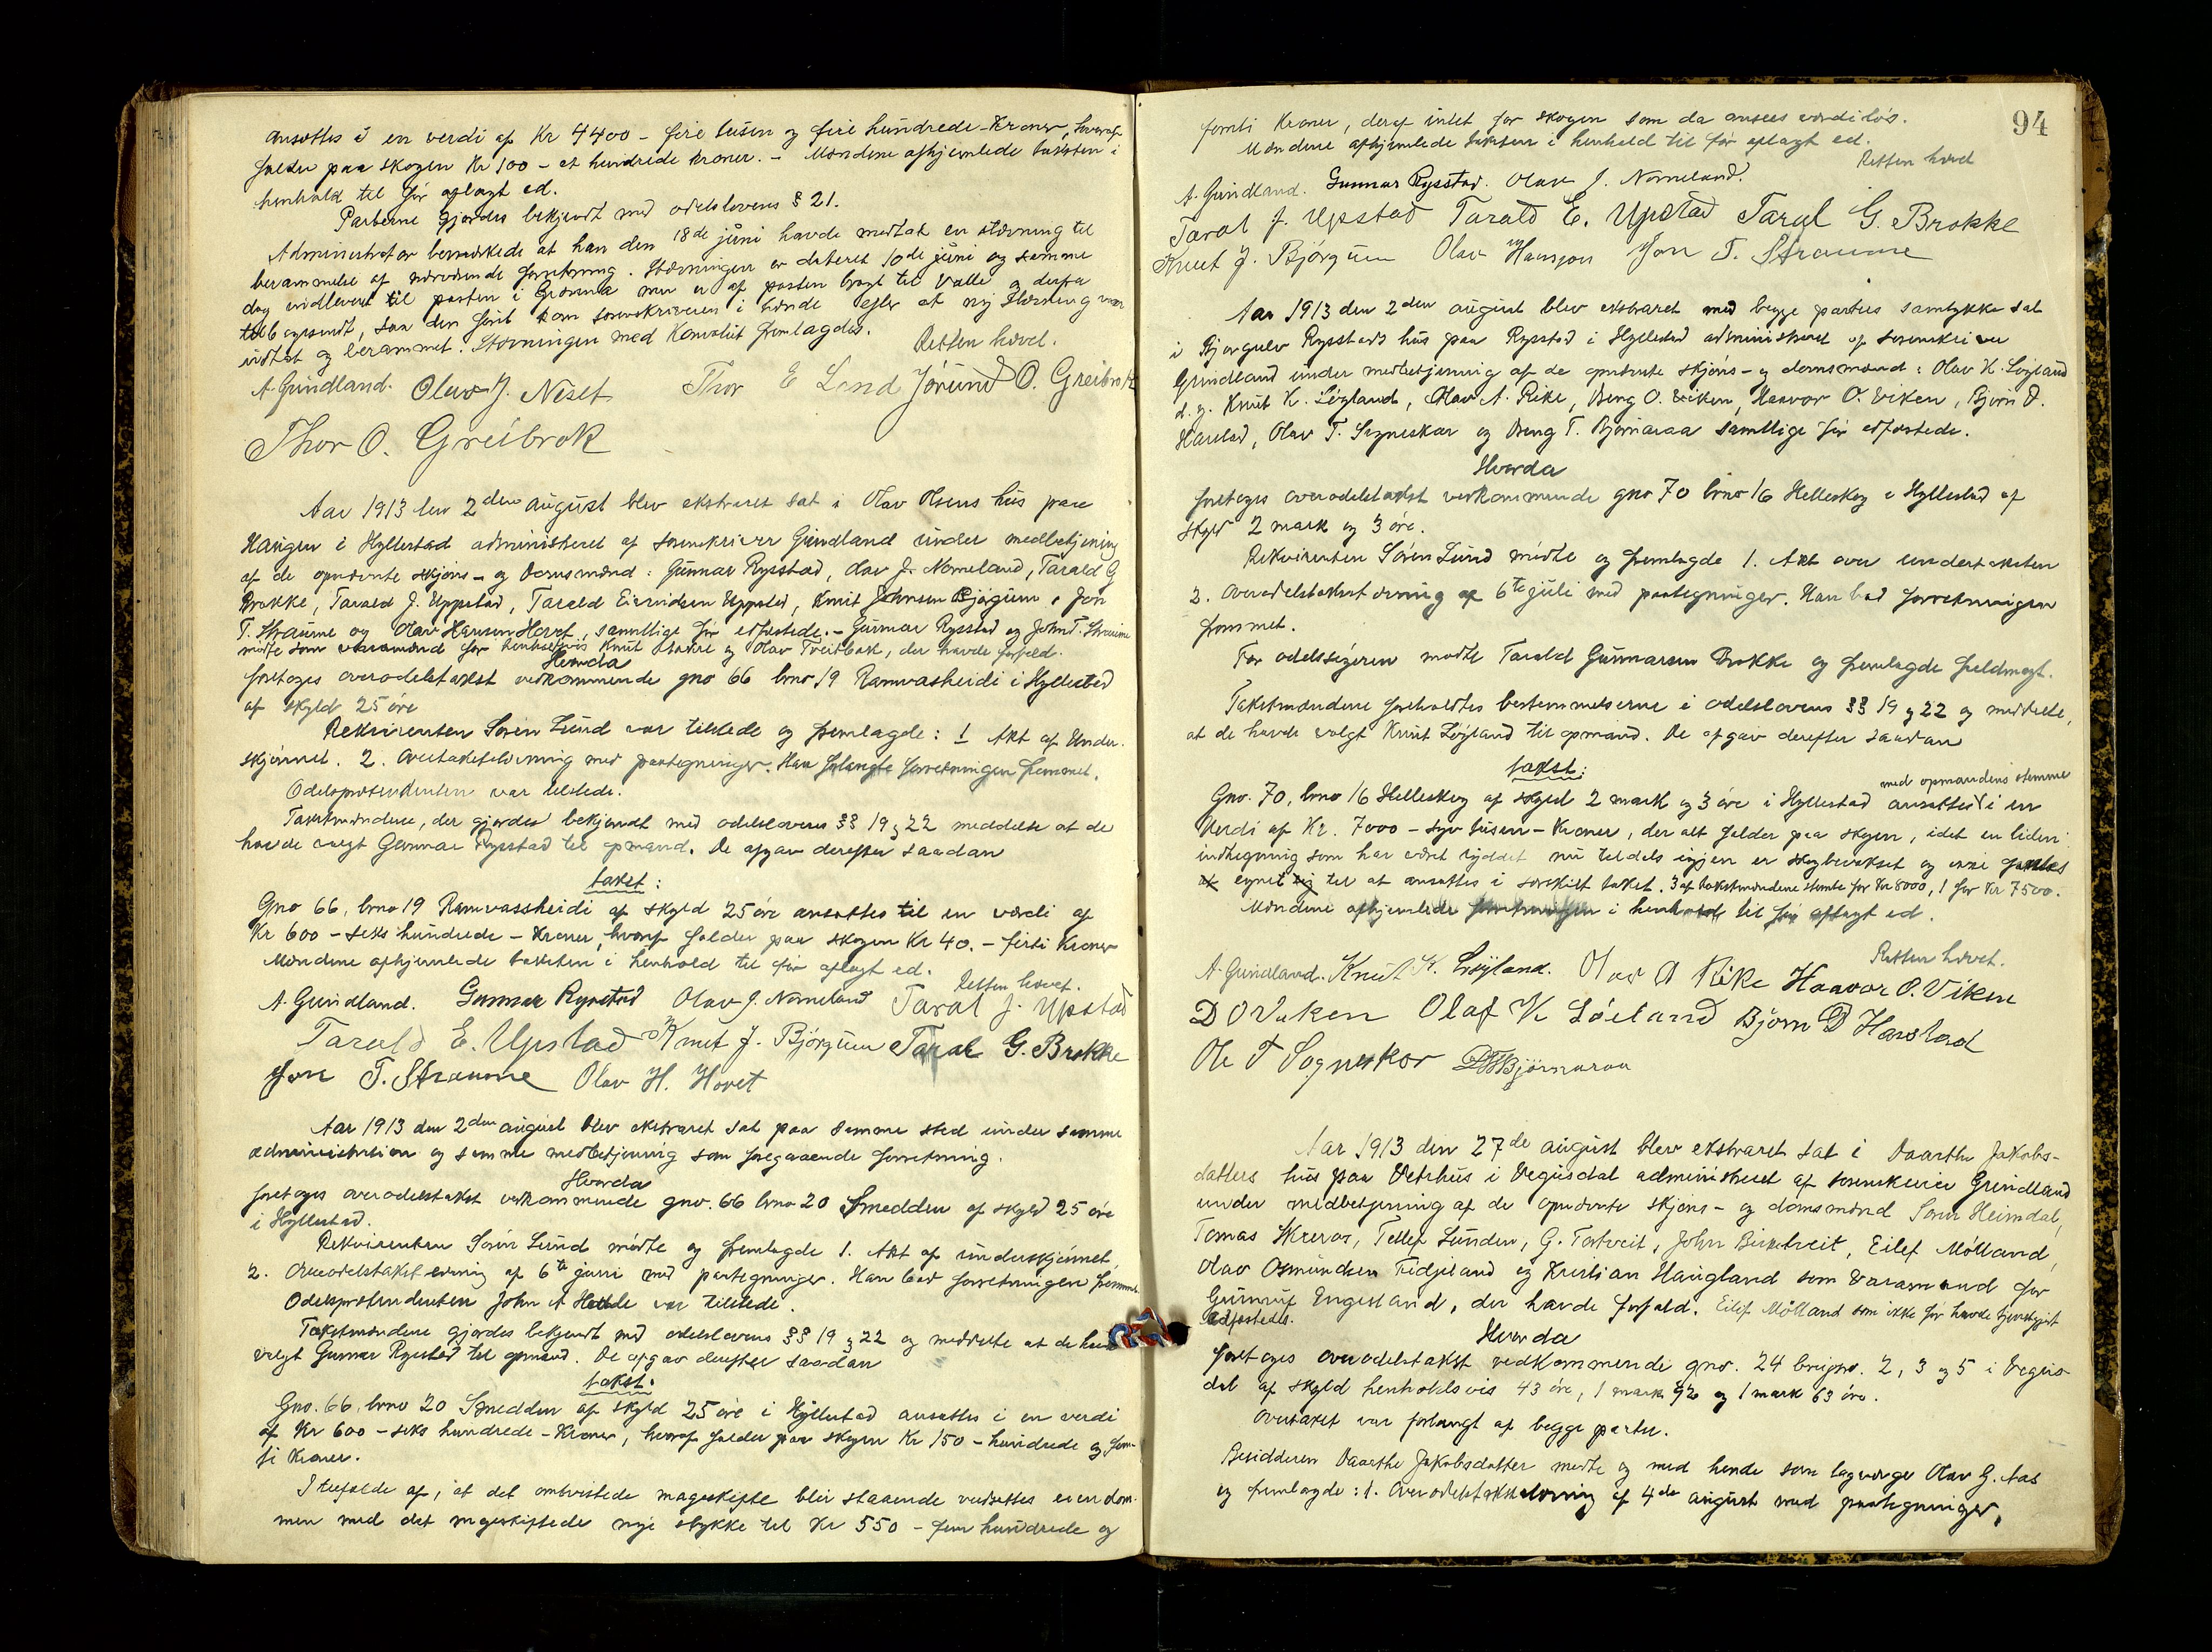 ansættes i en verdi af Kr 4400 - fire tusen og fire hundrede - Kroner, hvoraf
falder paa skogen Kr 100 - et hundrede kroner. - Mændene afhjemlede taksten i
henhold til før aflagt ed.
Parterne gjordes bekjendt med odelslovens § 21.
Administrator bemærkede at han den 18de juni havde mottat en stævning til
berammelse af nærværende forretning. Stævningen er dateret 10de juni og samme
dag indleveret til posten i men er af posten bragt til Valle og derfra
tilbagesendt, saa den først kom sorenskriveren i hænde efter at ny stævning var
indtat og berammet. Stævningen med Konvolut fremlagdes.
Retten hævet.
A. Grindland. Olav J. Neset Thor E Land Jørund O. Greibrok
Thor O. Greibrok
Aar 1913 den 2den august blev ekstraret sat i Olav Olsens hus paa
Haugen i Hyllestad administreret af sorenskriver Grindland under medbetjening
af de opnævnte skjøns- og domsmænd: Gunnar Rysstad, Olav J. Nomeland, Tarald G
Brokke, Tarald J. Uppstad, Tarald Eivindsen Uppstad, Knut Johnsen Bjørgum, Jon
T. Straume og Olav Hansen Hovet, samtlige før edfæstede. - Gunnar Rysstad og John T. Straume
møtte som varamænd for henholdsvis Knut og Olav Treitbak, der havde forfald.
Hvorda
foretoges overodelstakst vedkommende gno 66 brno 19 Ramvasheidi i Hyllestad
af skyld 25 øre
Rekvirenten Søren Lund var tilstede og fremlagde: 1 Akt af Under-
skjønnet. 2. Overtakststevning med paategninger. Han forlangte forretningen fremmet.
Odelspretendenten var tilstede.
Takstmændene, der gjordes bekjendt med odelslovens §§ 19 og 22 meddelte at de
havde valgt Gunnar Rysstad til opmand. De afgav derefter saadan
takst:
Gno 66, brno 19 Ramvassheidi af skyld 25 øre ansættes til en værdi af
Kr 600 - seks hundrede - Kroner, hvoraf falder paa skogen Kr 40. - firti Kroner
Mændene afhjemlede taksten i henhold til før aflagt ed.
Retten hævet.
A. Grindland. Gunnar Rysstad Olav J. Nomeland Taral J. Upstad
Tarald E. Upstad Knut J. Bjørgum Taral G. Brokke
Jon T. Straume Olav H. Hovet
Aar 1913 den 2den august blev ekstraret sat paa samme sted under samme
administration og samme medbetjening som foregaaende forretning.
Hvorda
foretoges overodelstakst vedkommende gno. 66 brno 20 Smedden af skyld 25 øre
i Hyllestad.
Rekvirenten Søren Lund møtte og fremlagde 1. Akt af underskjønnet,
2. Overodelstakststevning af 6te juni med paategninger. Han bad forretningen fremmet.
Odelspretendenten John A var tilstede.
Takstmændene gjordes bekjendt med odelslovens §§ 19 og 22 og meddelte at de havde
valgt Gunnar Rysstad til opmand. De afgav derefter saadan
takst.
Gno. 66, brno 20 Smedden af skyld 25 øre i Hyllestad ansættes i en verdi
af Kr 600 - seks hundrede - Kroner, hvoraf falder paa skogen Kr 150 - hundrede og fem-
ti Kroner.
I tilfælde af, at det omtvistede mageskifte blir staaende verdsettes eiendom-
men med det mageskiftede nye stykke til Kr 550 - fem hundrede og
94
femti Kroner, deraf intet for skogen som da ansees verdiløs.
Mændene afhjemlede taksten i henhold til før aflagt ed.
Retten hævet
A. Grindland. Gunnar Rysstad. Olav J. Nomeland.
Taral J. Upstad Tarald E. Upstad Taral G. Brokke
Knut J. Bjørgum Olav Hansson Jon T. Straume
Aar 1913 den 2den august blev ekstraret med begge parters samtykke sat
i Bjorgulv Rysstads hus paa Rysstad i Hyllestad administreret af sorenskriver
Grindland under medbetjening af de opnævnte skjøns- og domsmænd: Olav K. Løgland
d. y. Knut K. Løgland, Olav A. Rike, Dreng O. Viken, Haavor O. Viken, Bjørn D.
Harstad, Olav T. Sagneskar og Dreng T. Bjørnaraa samtlige før edfæstede.
Hvorda
foretoges overodelstakst vedkommende gno 70 brno 16 Helleskog i Hyllestad af
skyld 2 mark og 3 øre.
Rekvirenten Søren Lund møtte og fremlagde 1. Akt over undertaksten
2. Overodelstakststevning af 6te juli med paategninger. Han bad forretningen
fremmet.
For odelssøgeren møtte Tarald Gunnarsen Brokke og fremlagde fuldmagt.
Takstmændene foreholdtes bestemmelserne i odelslovens §§ 19 og 22 og meddelte,
at de havde valgt Knut Løgland til opmand. De afgav derefter saadan
takst:
med opmandens stemme
Gno. 70, brno 16 Helleskog af skyld 2 mark og 3 øre i Hyllestad ansættes i en
verdi af Kr. 7000 - syv tusen - Kroner, der alt falder paa skogen, idet en liden
indhegning som har været ryddet nu tildels igjen er skogbevokset og ikke
egnet sig til at ansættes i særskilt takst. 3 af takstmændene stemte for Kr 8000, 1 for Kr 7500.
Mændene afhjemlede forretningen i henhold til før aflagt ed.
Retten hævet.
A. Grindland. Knut K. Løyland. Olav A Rike Haavor O. Viken
D O Viken Olaf K Løiland Bjørn D Harstad
Ole T Sogneskar DTBjörnaraa
Aar 1913 den 27de august blev ekstraret sat i Daarthe Jakobs-
datters hus paa Vetrhus i Vegusdal administreret af sorenskriver Grindland
under medbetjening af de opnævnte skjøns- og domsmænd Søren Heimdal,
Tomas Skreros, Tellef Lunden, G. Tortveit, John Birketveit, Eilef Mølland,
Olav Osmundsen Fidjeland og Kristian Haugland som varamand for
Gunnuf Engesland, der havde forfald. Eilef Mølland som ikke før havde tjenstgjort
edfæstedes.
Hvorda
foretoges overodelstakst vedkommende gno. 24 bruksno. 2, 3 og 5 i Vegus-
dal af skyld henholdsvis 43 øre, 1 mark 92 og 1 mark 63 øre.
Overtakst var forlangt af begge parter.
Besidderen Daarthe Jakobsdatter møtte og med hende som lagverge Olav G. Aas
og fremlagde: 1. Overodelstakststevning af 4de august med paategninger,